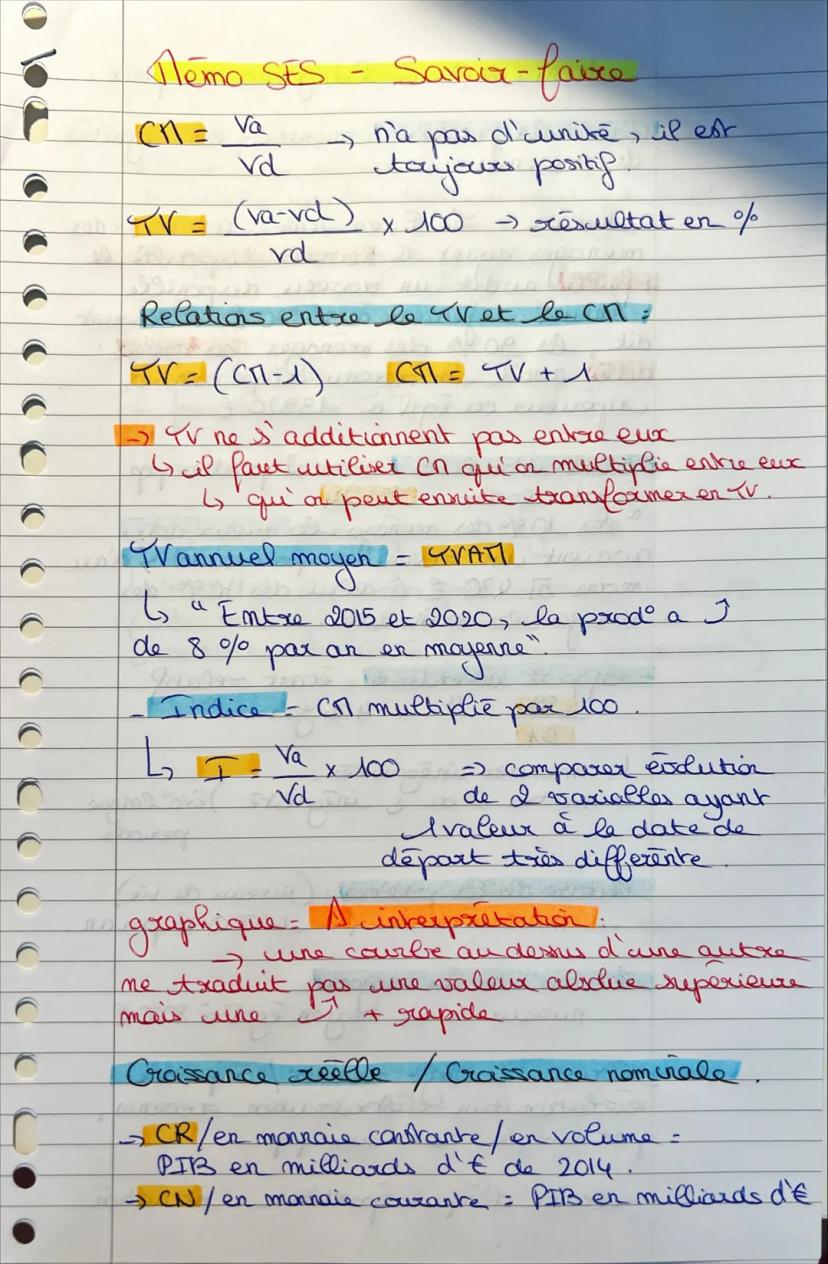 Mémo SES - Savoir-faire
CM = Va / Vd → n'a pas d'unité, il est
toujours positif.
TV = (Va-Vd) / Vd x 100 → résultat en %
Relations entre le TV et le CM :
TV = (CM-1) CM = TV + 1
→ TV ne s'additionnent pas entre eux
↳ il faut utiliser CM qu'on multiplie entre eux
↳ qu'on peut ensuite transformer en TV.
TV annuel moyen = TVAM
↳ " Entre 2015 et 2020, la prod° a ↗
de 8 % par an en moyenne".
- Indice = CM multiplié par 100.
↳ I = Va / Vd x 100 => comparer évolution
de 2 variables ayant
1 valeur à la date de
départ très différente.
graphique = ⚠ interprétation :
→ une courbe au dessus d'une autre
ne traduit pas une valeur absolue supérieure
mais une ↗ + rapide
Croissance réelle / Croissance nominale.
→ CR / en monnaie constante / en volume =
PIB en milliards d'€ de 2014.
→ CN / en monnaie courante = PIB en milliards d'€